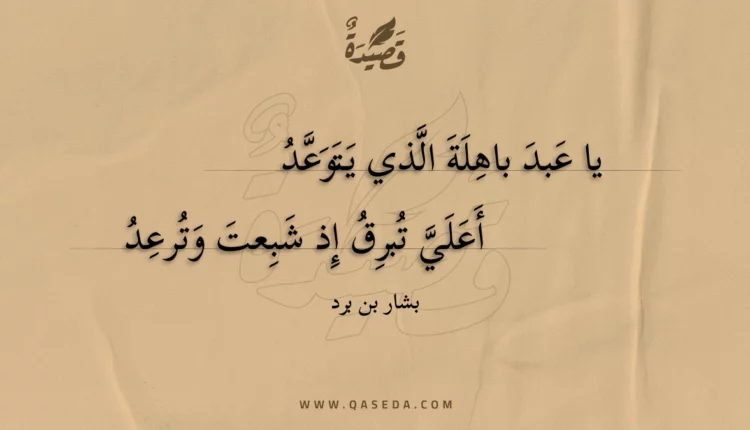 قَصِيدَةٌ
يا عَبدَ باهِلَةَ الَّذي يَتَوَعَّدُ
أَعَلَيَّ تُبرِقُ إِذ شَبِعتَ وَتُرعِدُ
بشار بن برد
WWW.QASEDA.COM